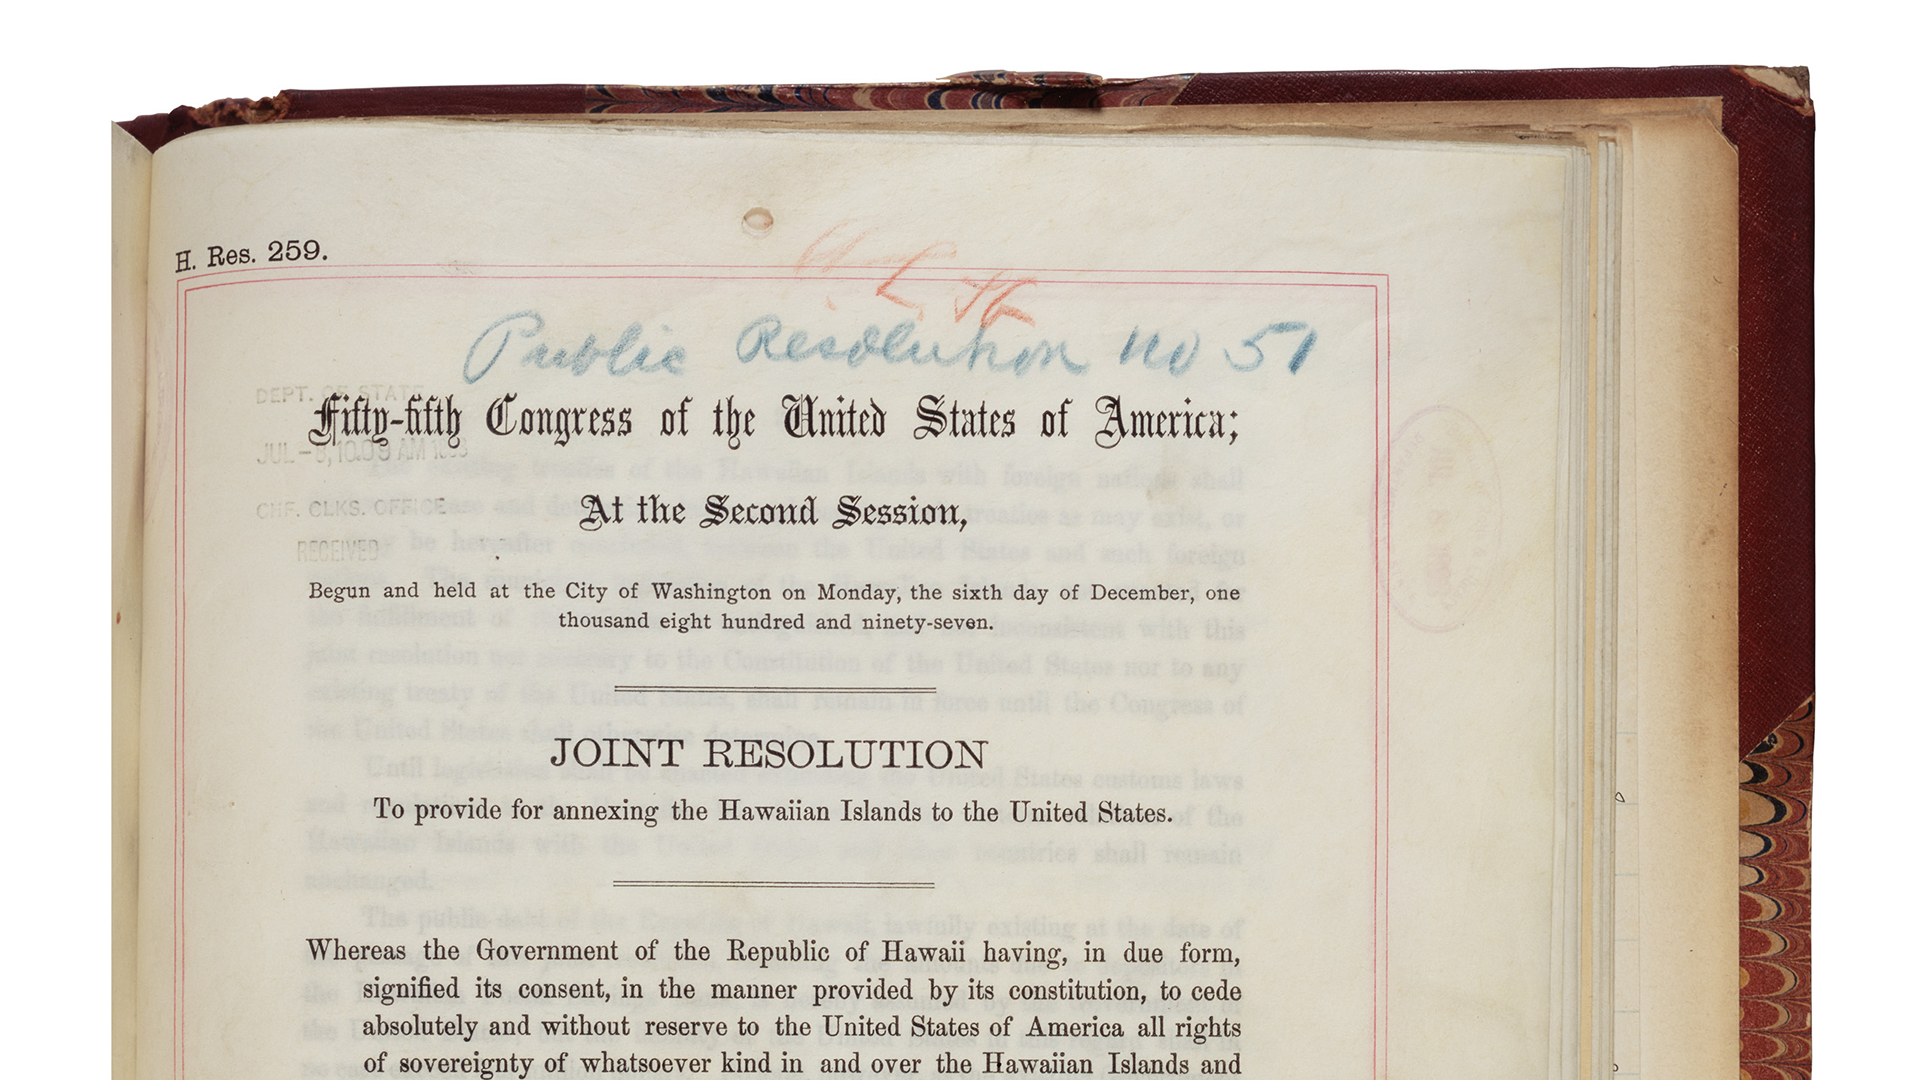 H. Res. 259.
Public Resolution No 51
DEPT. OF STATE
Fifty-fifth Congress of the United States of America;
JUL - 8, 10.09 AM 1898
At the Second Session,
CHF. CLKS. OFFICE
RECEIVED
Begun and held at the City of Washington on Monday, the sixth day of December, one
thousand eight hundred and ninety-seven.
JOINT RESOLUTION
To provide for annexing the Hawaiian Islands to the United States.
Whereas the Government of the Republic of Hawaii having, in due form,
signified its consent, in the manner provided by its constitution, to cede
absolutely and without reserve to the United States of America all rights
of sovereignty of whatsoever kind in and over the Hawaiian Islands and